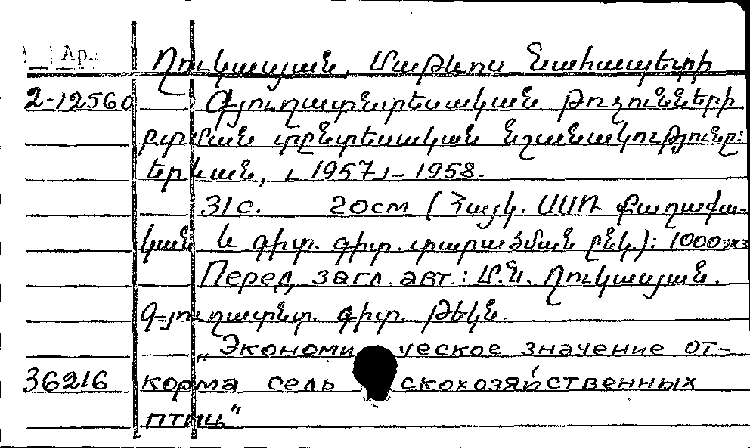 Ար. Ղուկասյան, Մաթևոս Նահապետի
2-12560 Գյուղատնտեսական թռչունների
բտման տնտեսական նշանակությունը:
Երևան, 1957 - 1958.
31с. 20см (Հայկ. ՍՍՌ Քաղաքա-
կան և գիտ. գիտ. տարածման ընկ.): 1000
Перед загл. авт.: Մ.Ն. Ղուկասյան.
Գյուղատնտ. գիտ. թեկն.
„Экономическое значение от-
36216 корма сельскохозяйственных
птиц"